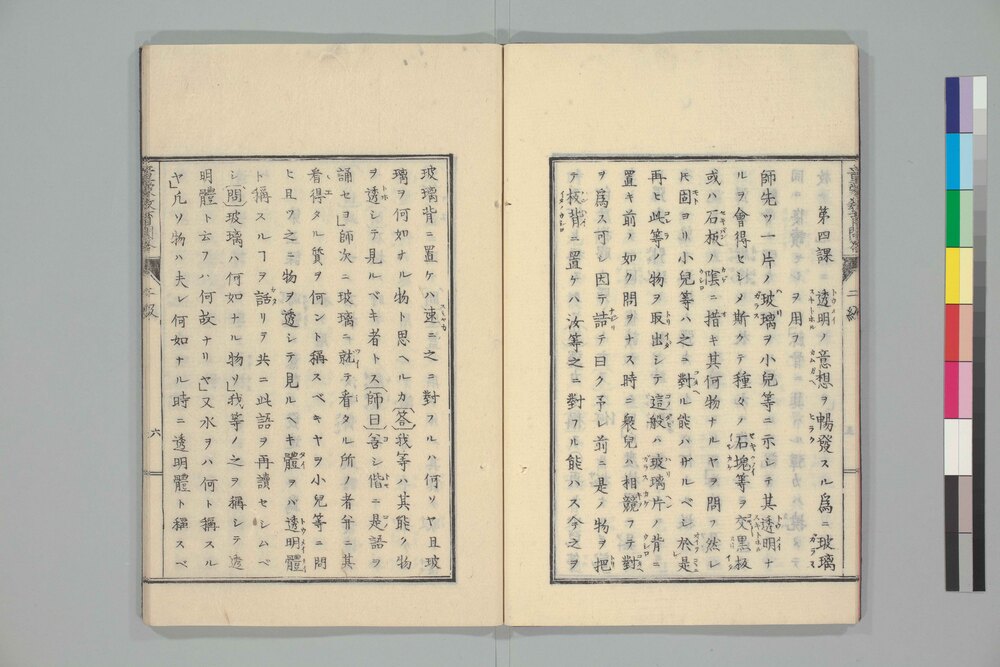 第四課ニ透明ノ意想ヲ暢發スル爲ニ玻璃
ヲ用フ
師先ツ一片ノ玻璃ヲ小兒等ニ示シテ其透明ナ
ルヲ會得セシメ斯クテ種々ノ石塊等ヲ交黒板
或ハ石板ノ陰ニ措キ其何物ナルヤヲ問フ然レ
𪜈固ヨリ小兒等ハ之ニ對ル能ハザルベシ於是
再ヒ此等ノ物ヲ取出シテ這般ハ玻璃片ノ背ニ
置キ前ノ如ク問ヲナス時ニ衆兒ハ相競フテ對
ヲ爲ス可シ因テ詰テ曰ク予レ前ニ是ノ物ヲ把
テ板背ニ置ケハ汝等之ニ對フル能ハス今之ヲ
玻璃背ニ置ケハ速ニ之ニ對フルハ何ソヤ且玻
璃ヲ何如ナル物ト思ヘルカ〔答〕我等ハ其能ク物
ヲ透シテ見ルベキ者トス〔師曰〕善シ偕ニ是語ヲ
誦セヨ」師次ニ玻璃ニ就テ看タル所ノ者并ニ其
看得タル質ヲ何ント稱スベキヤヲ小兒等ニ問
ヒ且フ之ニ物ヲ透シテ見ルヘキ體ヲバ透明體
ト稱スルヿヲ話リヲ共ニ此語ヲ再讀セシムベ
シ〔問〕玻璃ハ何如ナル物ソ」我等ノ之ヲ稱シテ透
明體ト云フハ何故ナリヤ」又水ヲハ何ト稱スル
ヤ」凡ソ物ハ夫レ何如ナル時ニ透明體ト稱スベ
六